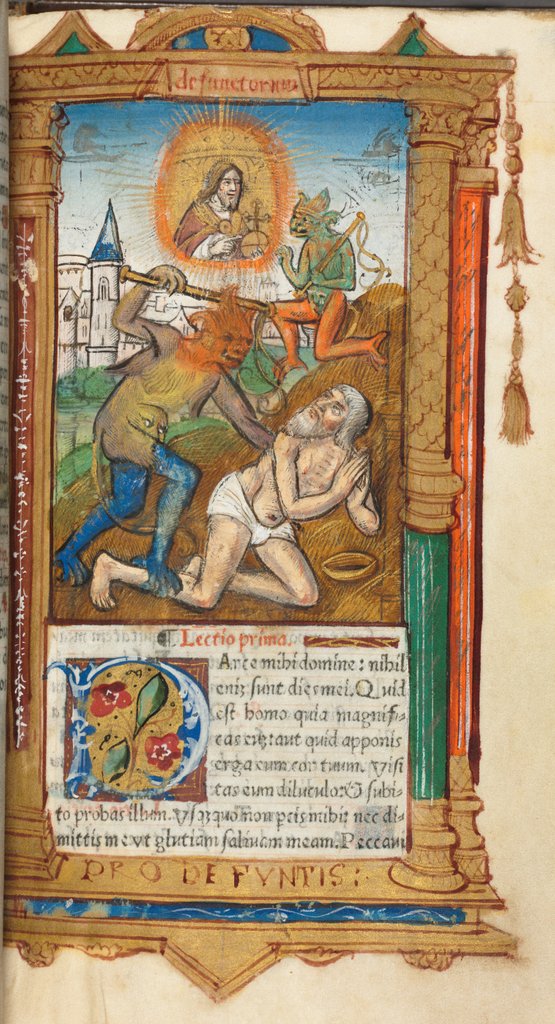 defunctorum
Lectio prima.
Arce mihi domine: nihil
eniz sunt dies mei. Quid
est homo quia magnifi-
cas eum: aut quid apponis
erga eum cor tuum. Visi
tas eum diluculo: & subi-
to probas illum. Usqzquo non pcis mihi: nec di-
mittis me vt glutiam saliuam meam. Peccaui
PRO DEFVNTIS: